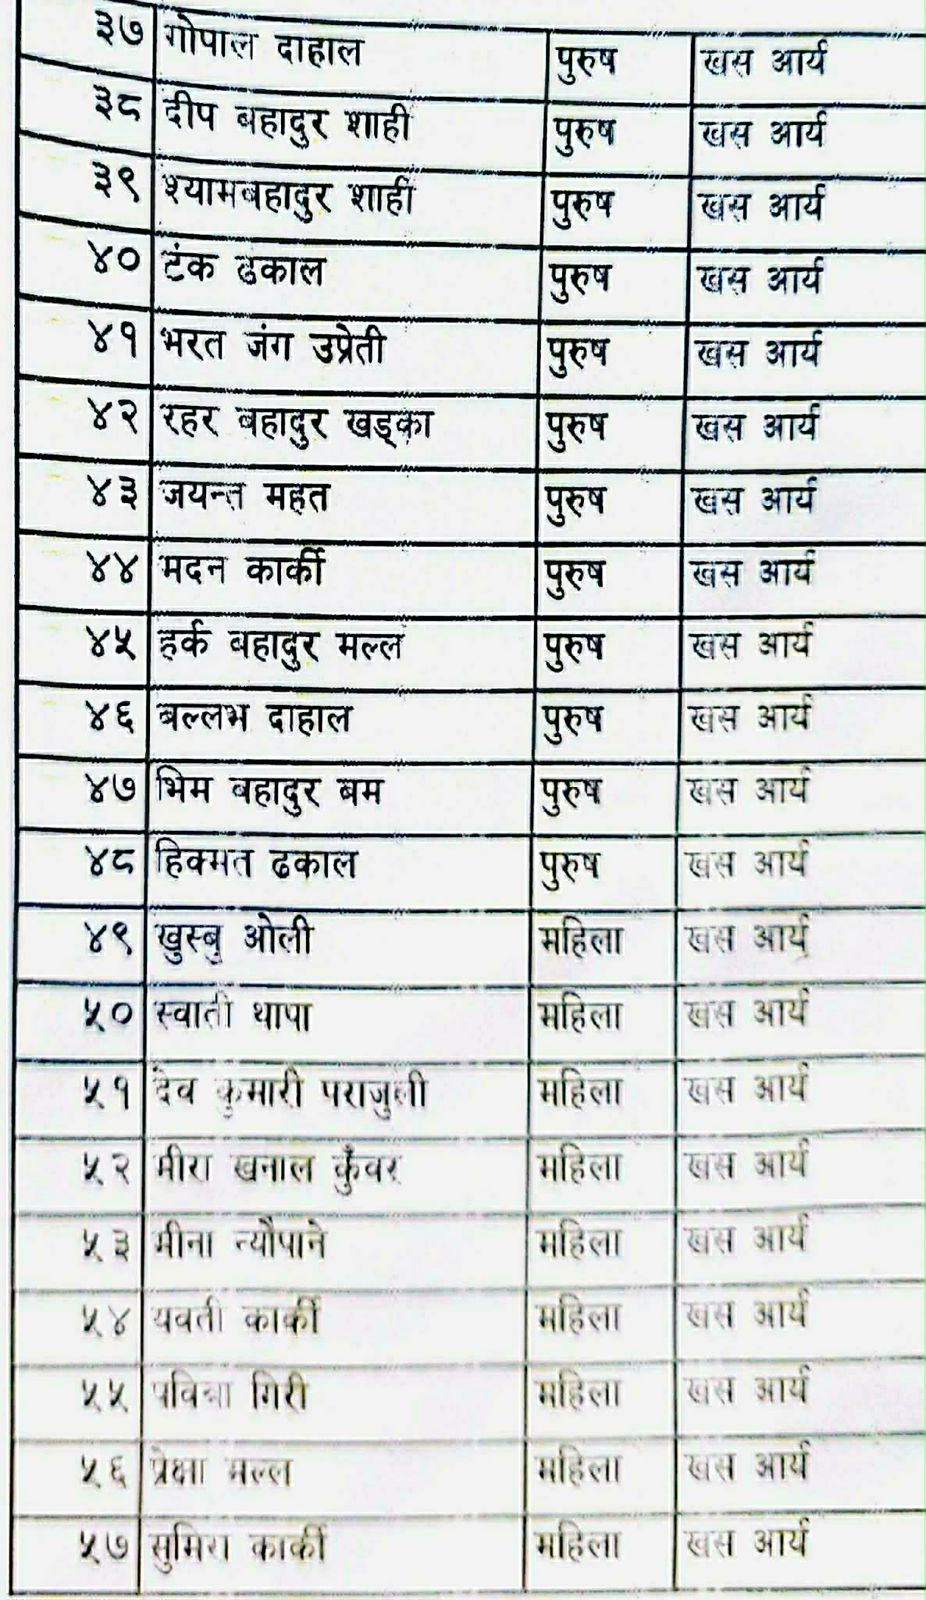 ३७ गोपाल दाहाल पुरुष खस आर्य
३८ दीप बहादुर शाही पुरुष खस आर्य
३९ श्यामबहादुर शाही पुरुष खस आर्य
४० टंक ढकाल पुरुष खस आर्य
४१ भरत जंग उप्रेती पुरुष खस आर्य
४२ रहर बहादुर खड्का पुरुष खस आर्य
४३ जयन्त महत पुरुष खस आर्य
४४ मदन कार्की पुरुष खस आर्य
४५ हर्क बहादुर मल्ल पुरुष खस आर्य
४६ बल्लभ दाहाल पुरुष खस आर्य
४७ भिम बहादुर बम पुरुष खस आर्य
४८ हिक्मत ढकाल पुरुष खस आर्य
४९ खुस्बु ओली महिला खस आर्य
५० स्वाती थापा महिला खस आर्य
५१ देव कुमारी पराजुली महिला खस आर्य
५२ मीरा खनाल कुँवर महिला खस आर्य
५३ मीना न्यौपाने महिला खस आर्य
५४ यवती कार्की महिला खस आर्य
५५ पवित्रा गिरी महिला खस आर्य
५६ प्रेक्षा मल्ल महिला खस आर्य
५७ सुमिरा कार्की महिला खस आर्य